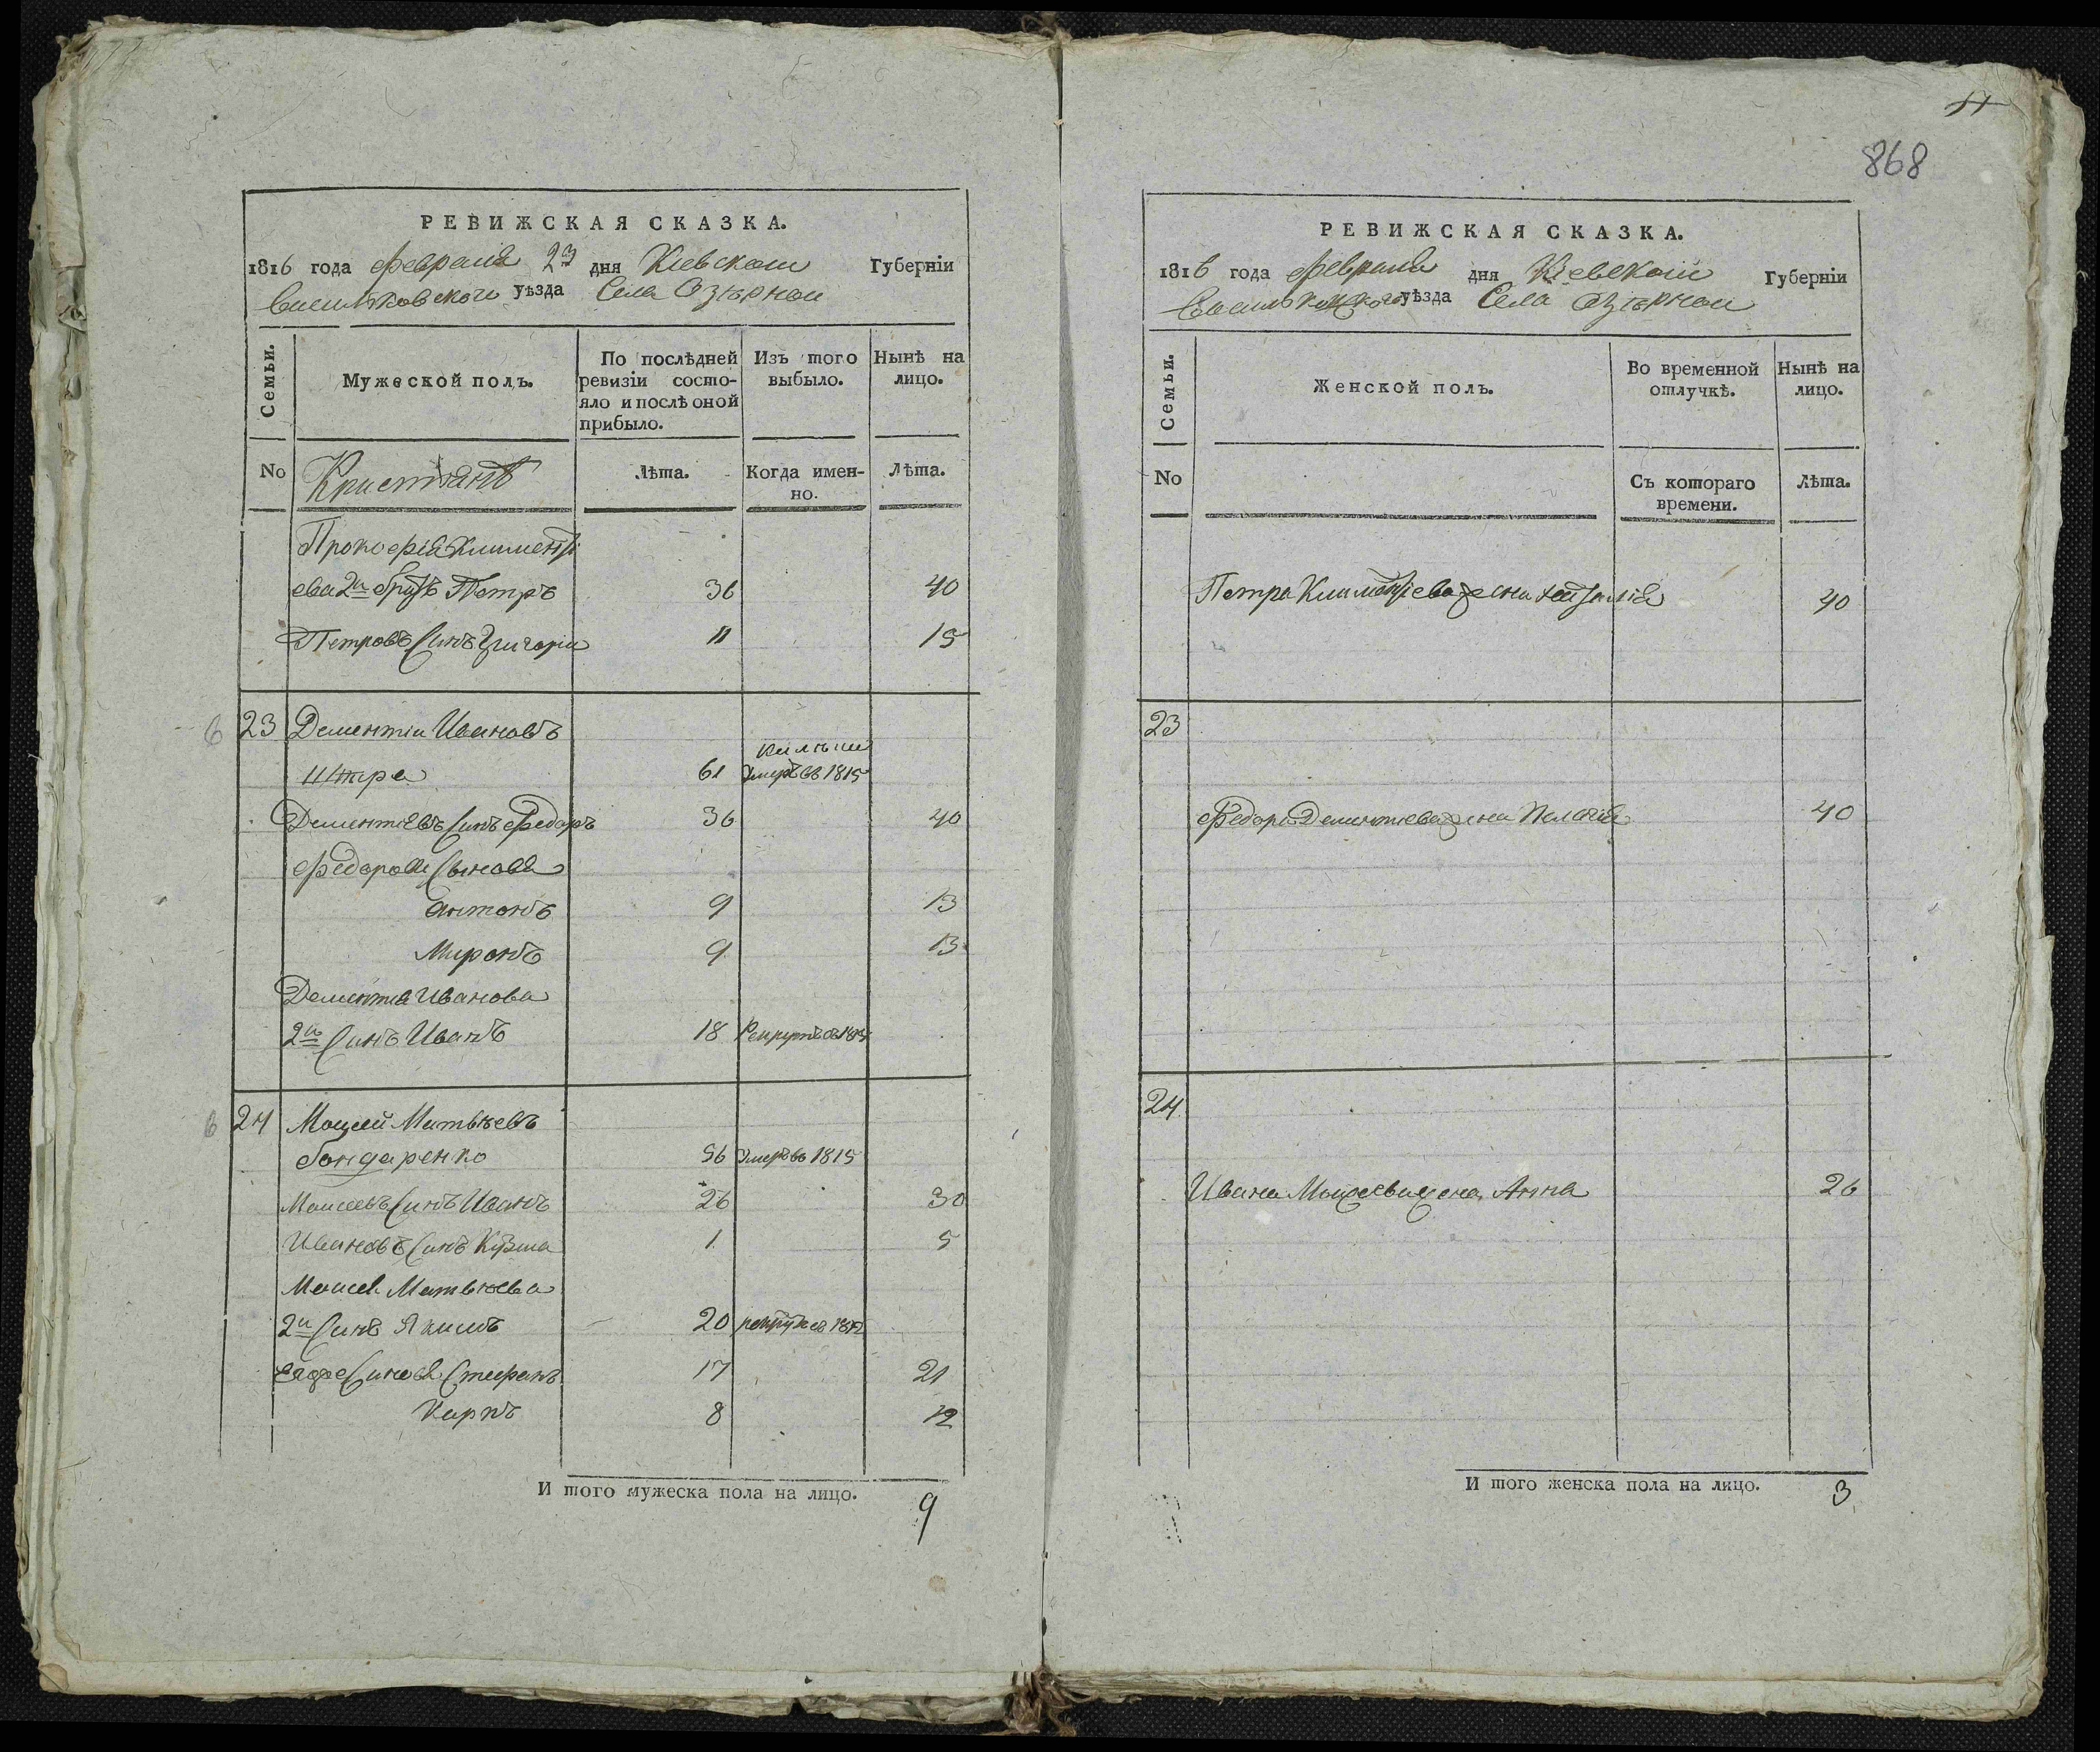 868
РЕВИЖСКАЯ СКАЗКА.
1816 года февраля 23 дня Киевской Губерніи
Васильковского уѣзда Села Озѣрной
Семьи.
Мужеской полъ.
По послѣдней ревизіи состо-
яло и послѣ оной прибыло.
Изъ того выбыло.
Нынѣ на лицо.
No
Кристіанъ
Лѣта.
Когда имен-
но.
Лѣта.
Прокофія Клименті
ева 2й братъ Петръ 36 40
Петровъ Синъ Григорій 11 15
6 23 Дементій Ивановъ
61 Умеръ въ 1815
Дементіевъ Синъ Федоръ 36 40
Федорови Сынова
Антонъ 9 13
Миронъ 9 13
Дементія Иванова
2й Синъ Иванъ 18 Рекрутъ въ
6 24 Моисей Матвѣевъ
бондаренко 56 Умеръ въ 1815
Моисеевъ Синъ Иванъ 26 30
Ивановъ Синъ Кузма 1 5
Моисея Матвѣева
2й Синъ Якимъ 20 рекрутъ въ 1812
Синовя Стефанъ 17 21
Карпъ 8 12
И того мужеска пола на лицо. 9
РЕВИЖСКАЯ СКАЗКА.
1816 года февраля дня Киевской Губерніи
Васильковского уѣзда Села Озѣрной
Семьи.
Женской полъ.
Во временной отлучкѣ.
Нынѣ на лицо.
No
Съ котораго времени.
Лѣта.
Петра Климентіева жена Наталія 40
23
Федора Дементіева жена Пелагія 40
24
Ивана Моисеева жена Анна 26
И того женска пола на лицо. 3